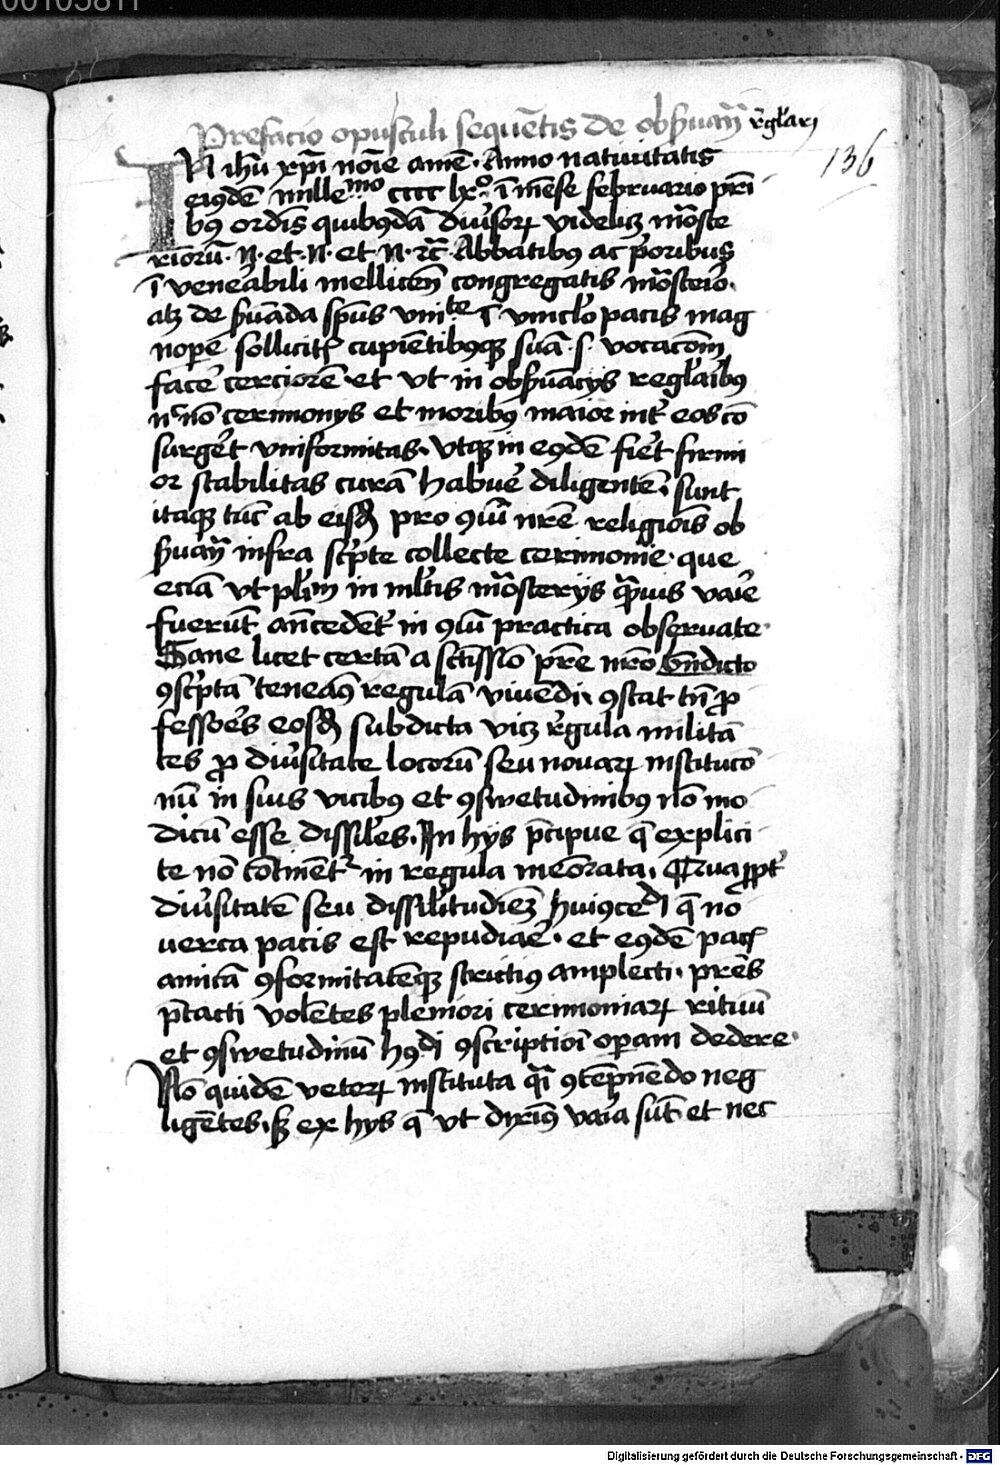 00105811
Prefacio opusculi sequētis de obẜuan̄ r̄glar̄
136
IN ihū xp̄i noīe amē. Anno natiuitatis
eiꝰdē mille mo cccc lxo. ī mēse februario pr̄i
bꝰ ordīs quibꝰdā diu̓soꝝ videlitz mōste
rioru̅. N. et. N. et N. ⁊c̄. Abbatibꝰ ac p̓oribus
ī ven̓abili mellicēn congregatis mōsteio.
atꝫ de ẜuāda sp̄us vnite ī vinclo pacis mag
nope̅ sollicitꝭ cupiētibꝰqꝫ suā .s. vocacōm
face̓ cerciorē. et vt in obẜuācijs regl̓aibꝰ
nc̓nō cerimonijs et moribꝰ maior int̓ eos cō
surge̓t vniformitas. vtqꝫ in eꝰdē fie̓t firmi
or stabilitas curā habue̓ diligentē. sunt
itaqꝫ tūc ab eisdꝫ pro ꝯiū nr̄e religiōis ob
ẜuan̄ infra sc̓pte collecte cerimonie. que
eciā vt pl̓im in ml̓tis mōsterijs ꝓ̄ius vaie̓
fuerūt an̄cedēt̓ in ꝯiū practica obseruate.
Sane licet certā a sc̄tissīo pr̄e nr̄o Bn̄dicto
ꝯsc̓ptā teneaꝰ regulā viuēdi. ꝯstat tn̄ ꝓ
fessoēs eosdꝫ sub dicta vicꝫ r̄gula militā
tes ꝓ diu̓sitate locorū seu nouaꝝ institucō
nū in suis vicibꝰ et ꝯswetudinibꝰ nō mo
dicū esse dissil̓es. In hijs p̄cipue q̄ explici
te nō cōtinēt̓ in regula meōrata. Quapp̓t
diu̓sitatē seu dissil̓itudiēꝫ huiꝰcedi q̄ no
uerca pacis est repudiae̓. et eꝰdē pacꝭ
amicā ꝯformitatēqꝫ strictiꝰ amplecti. pr̄es
p̄tacti volētes pleniori cerimoniaꝝ rituū
et ꝯswetudinū hꝰdi ꝯscriptiōi operam dedere.
Nō quidē veteꝝ instituta q̄i ꝯtēpnēdo neg
ligētes. sꝫ ex hijs q̄ vt dixiꝰ vaia sūt et nec
Digitalisierung gefördert durch die Deutsche Forschungsgemeinschaft - DFG